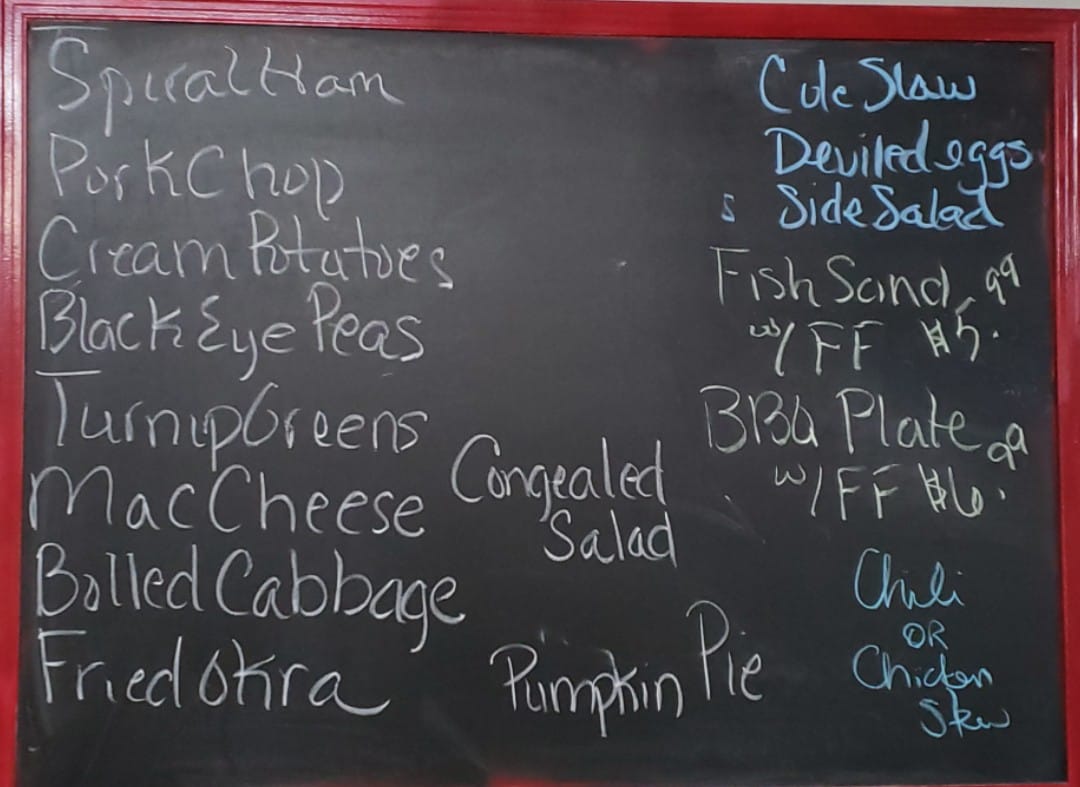 Spiral Ham
Pork Chop
Cream Potatoes
Black Eye Peas
Turnip Greens
Mac Cheese
Boiled Cabbage
Fried Okra
Congealed
Salad
Pumpkin Pie
Cole Slaw
Deviled eggs
Side Salad
Fish Sand
w/ FF $5.99
BBQ Plate
w/ FF $6.99
Chili
OR
Chicken
Stew